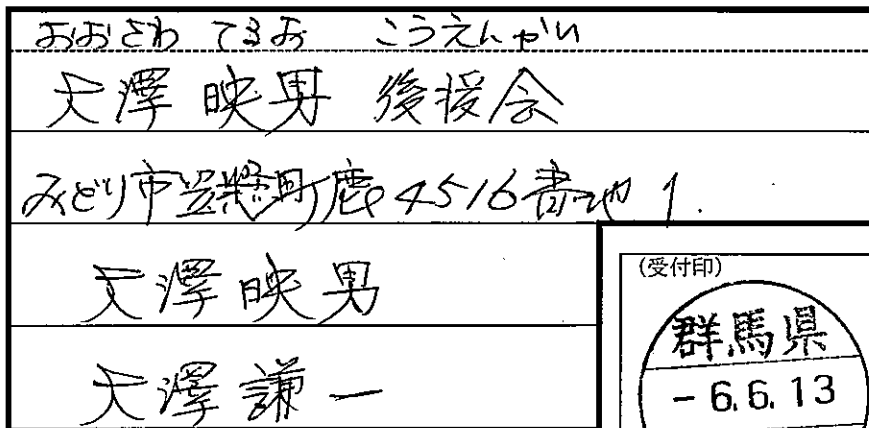 おおさわ てるお こうえんかい
大澤 映男 後援会
みどり市笠懸町鹿4516番地1.
大澤映男
大澤謙一
(受付印)
群馬県
-6.6.13